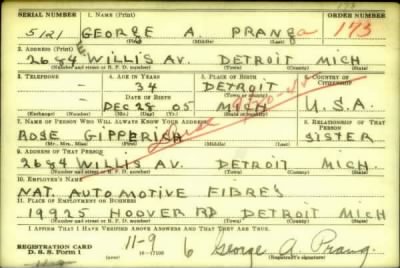 SERIAL NUMBER 1. NAME (Print) ORDER NUMBER
5121 GEORGE A. PRANGA 173
(First) (Middle) (Last)
2. ADDRESS (Print)
2684 WILLIS AV. DETROIT MICH
(Number and street or R. F. D. number) (Town) (County) (State)
3. TELEPHONE 4. AGE IN YEARS 5. PLACE OF BIRTH 6. COUNTRY OF CITIZENSHIP
34 DETROIT
DATE OF BIRTH (Town or county)
DEC 28 05 MICH U.S.A.
(Exchange) (Number) (Mo.) (Day) (Yr.) (State or country)
7. NAME OF PERSON WHO WILL ALWAYS KNOW YOUR ADDRESS 8. RELATIONSHIP OF THAT PERSON
ROSE GIPPERICH SISTER
(Mr., Mrs., Miss) (First) (Middle) (Last)
9. ADDRESS OF THAT PERSON
2684 WILLIS AV. DETROIT MICH.
(Number and street or R. F. D. number) (Town) (County) (State)
10. EMPLOYER'S NAME
NAT. AUTOMOTIVE FIBRES
11. PLACE OF EMPLOYMENT OR BUSINESS
19925 HOOVER RD DETROIT MICH
(Number and street or R. F. D. number) (Town) (County) (State)
I AFFIRM THAT I HAVE VERIFIED ABOVE ANSWERS AND THAT THEY ARE TRUE.
REGISTRATION CARD
D. S. S. Form 1
11-9 6 George A. Prang
16-17105 (Registrant's signature)